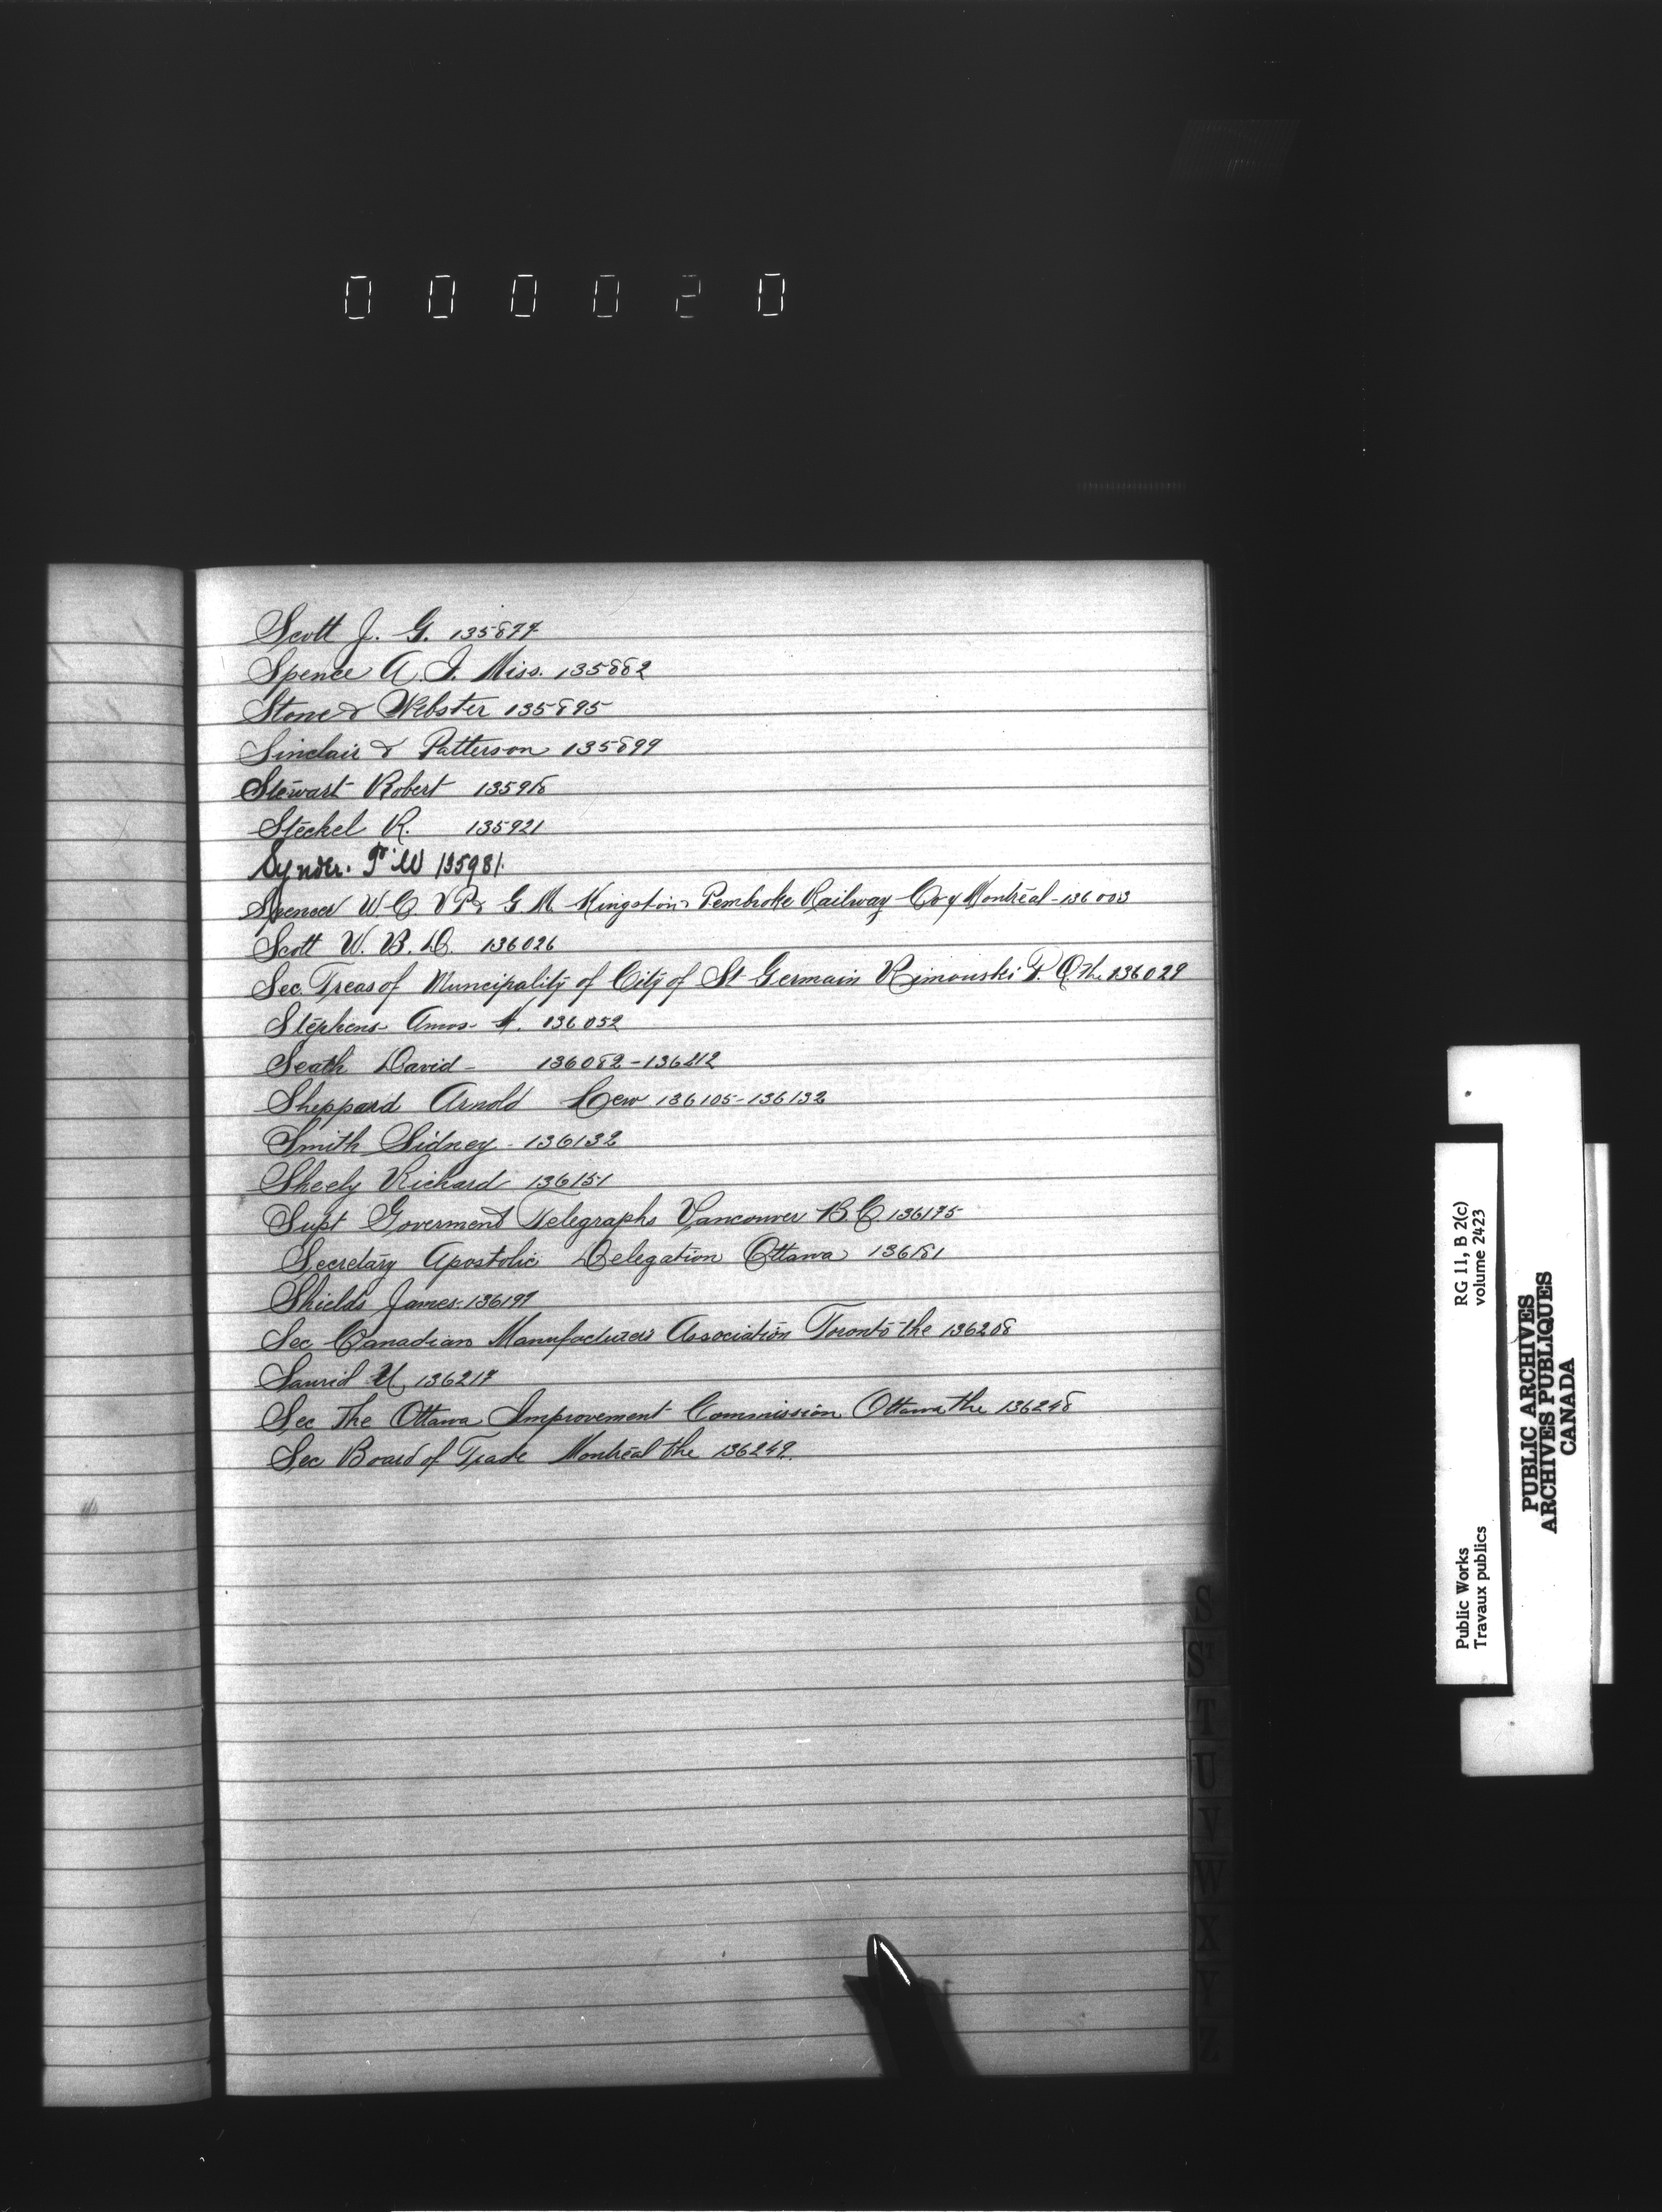 000020
Scott J. G. 135877
Spence A. I. Miss. 135882
Stone & Webster 135895
Sinclair & Patterson 135899
Stewart Robert 135918
Steckel R. 135921
Synder. F W 135981.
Spencer W C V P & G M Kingston & Pembroke Railway Coy Montreal - 136003
Scott W. B. D. 136026
Sec. Treas of Muncipality of City of St Germain Rimouski P. Q. The 136029
Stephens Amos 136052
Seath David - 136082 - 136212
Sheppard Arnold 136105 - 136132
Smith Sidney - 136132
Sheely Richard 136151
Supt Goverment Telegraphs Vancouver B C 136175
Secretary Apostolic Delegation Ottawa 136181
Shields James - 136197
Sec Canadian Manufacturers Association Toronto the 136208
136217
Sec The Ottawa Improvement Commission Ottawa the 136248
Sec Board of Trade Montreal the 136249.
S
ST
T
U
V
W
X
Y
Z
Public Works
Travaux publics
RG 11, B 2(c)
volume 2423
PUBLIC ARCHIVES
ARCHIVES PUBLIQUES
CANADA